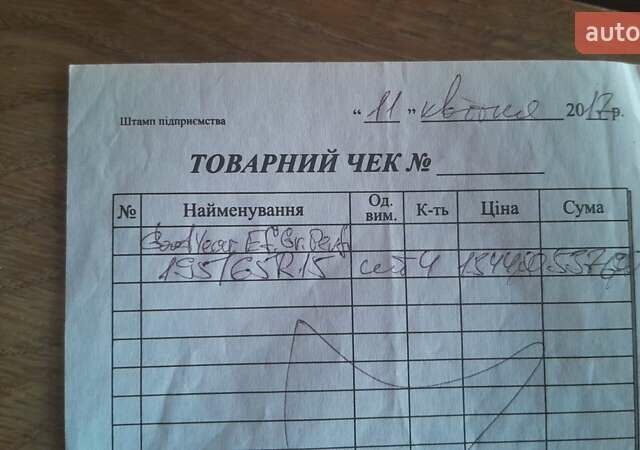 auto
Штамп підприємства
“ 11 ” квітня 2017р.
ТОВАРНИЙ ЧЕК №
№ Найменування Од. вим. К-ть Ціна Сума
Good Year Ef. Gr. Perf
195/65R15 4 1344,00 5376,00